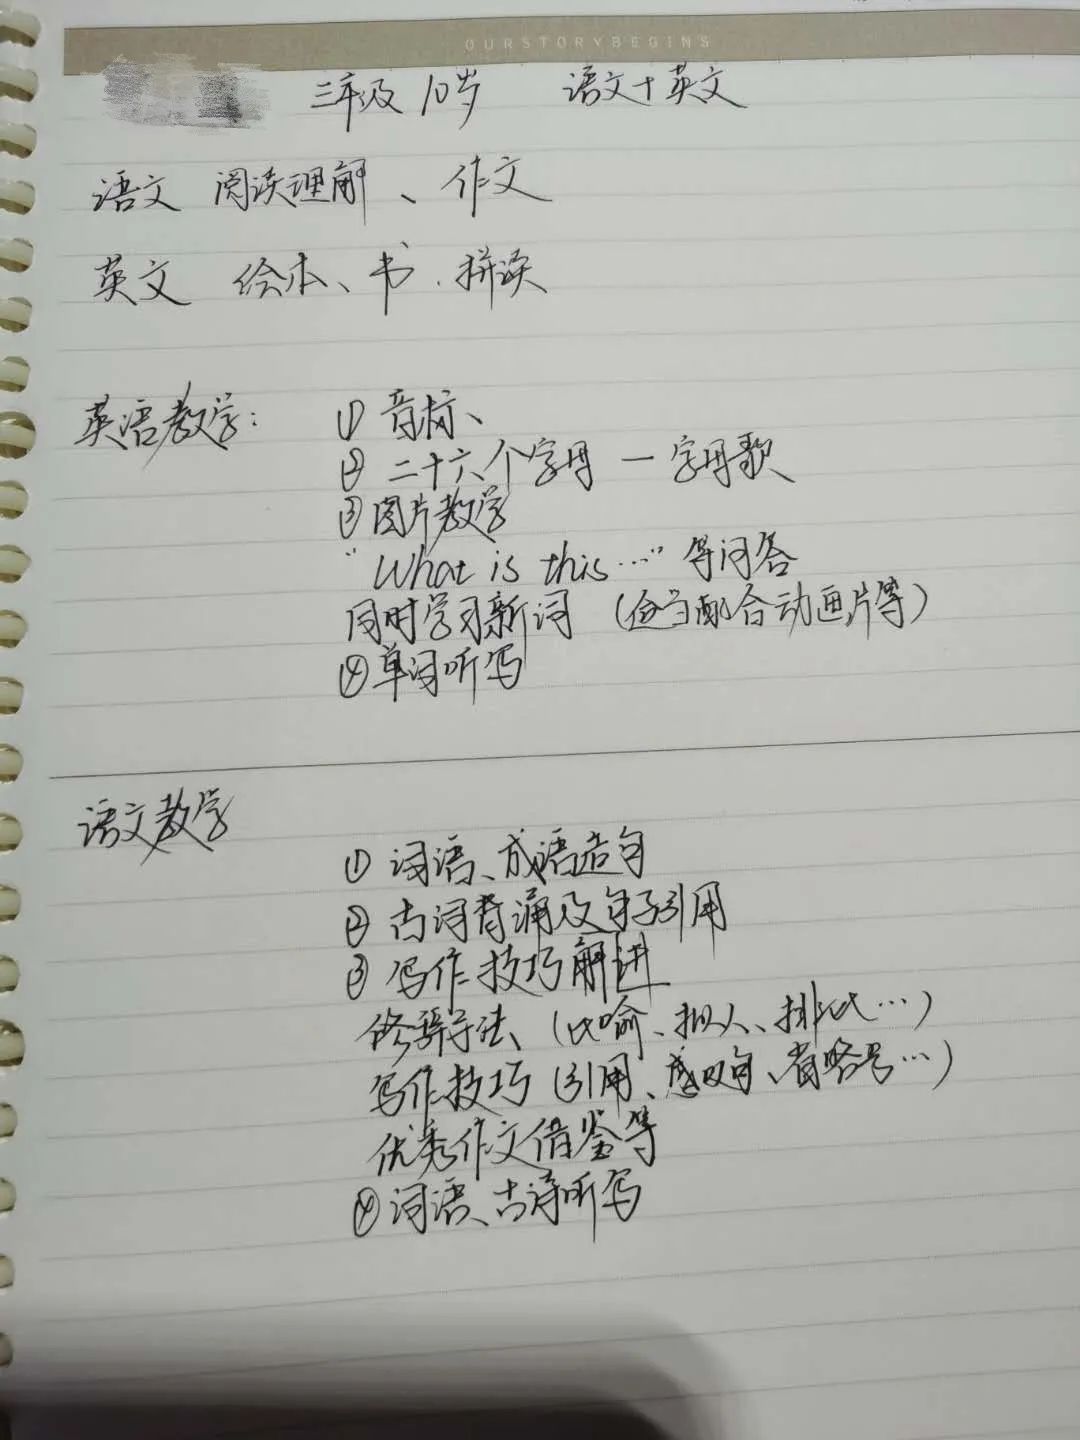 OURSTORYBEGINS
三年级 10岁 语文+英文
语文 阅读理解、作文
英文 绘本、书、拼读
英语教学: ① 音标、
② 二十六个字母 — 字母歌
③ 图片教学
"What is this…" 等问答
同时学习新词 (适当配合动画片等)
④ 单词听写
语文教学
① 词语、成语造句
② 古词背诵及句子引用
③ 写作技巧解进
修辞手法、(比喻、拟人、排比…)
写作技巧 (引用、感叹句、省略号…)
优秀作文借鉴等
④ 词语、古诗听写